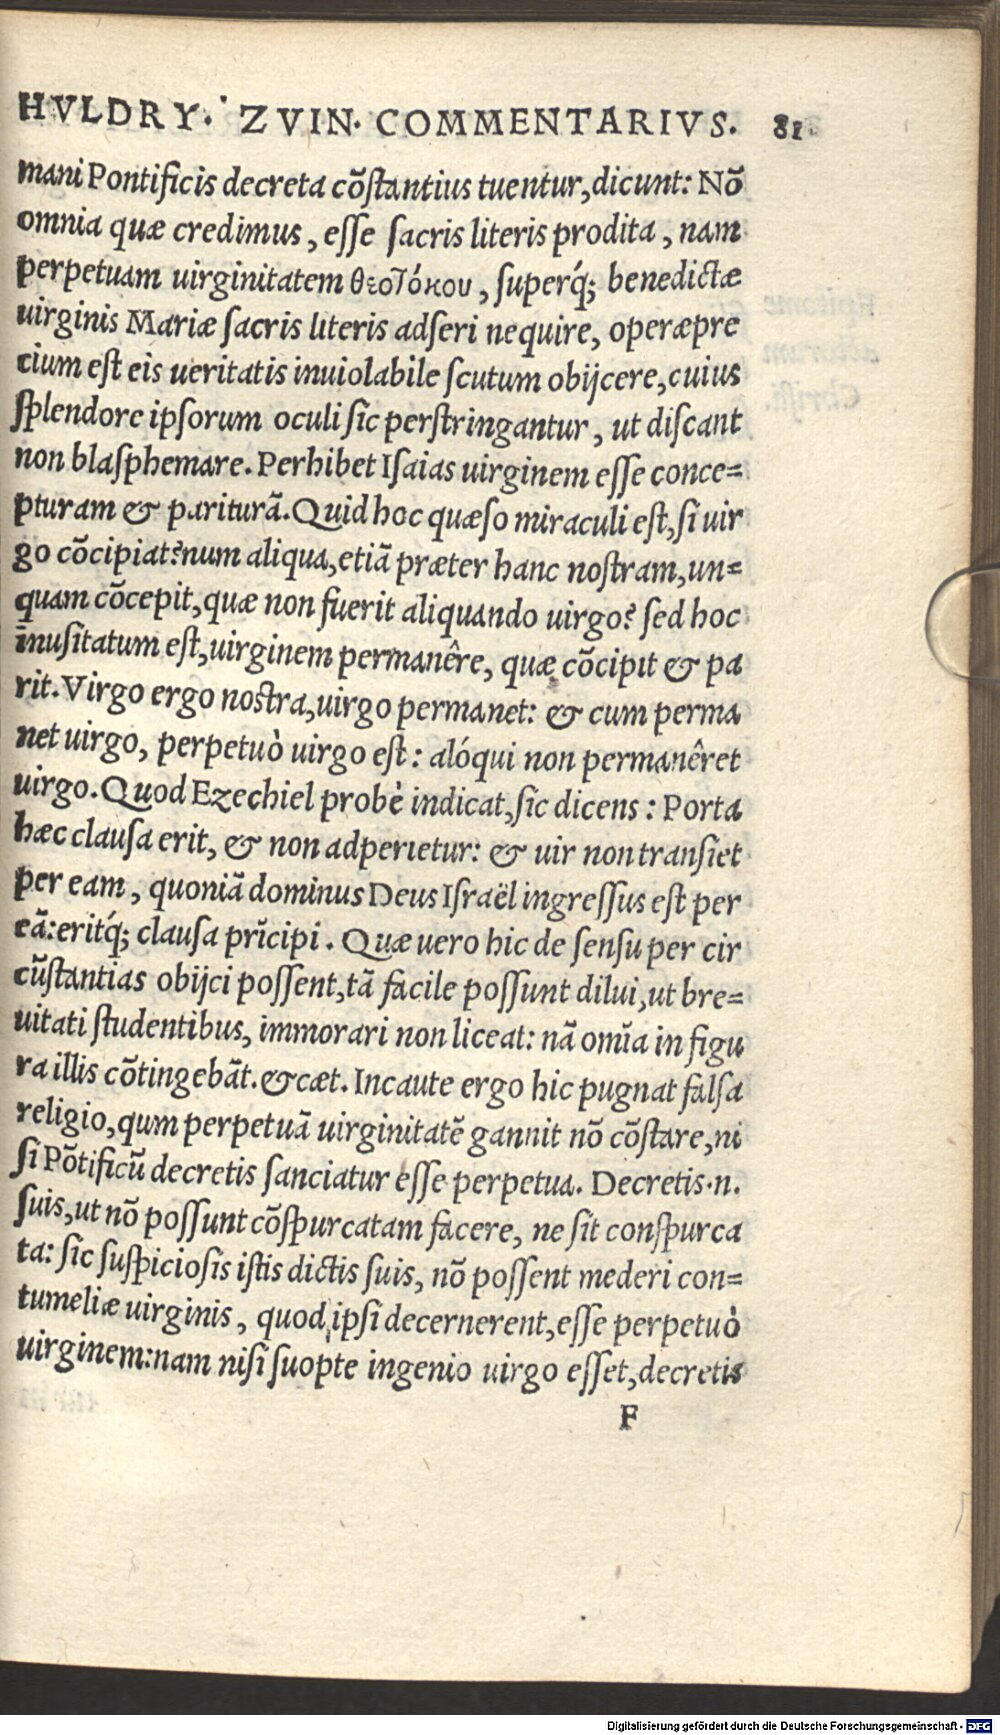 HVLDRY. ZVIN. COMMENTARIVS. 81
mani Pontificis decreta cõſtantius tuentur, dicunt: Nõ
omnia quæ credimus, eſſe ſacris literis prodita, nam
perpetuam uirginitatem θεοτόκου, ſuperq́; benedictæ
uirginis Mariæ ſacris literis adſeri nequire, operæpre
cium eſt eis ueritatis inuiolabile ſcutum obijcere, cuius
ſplendore ipſorum oculi ſic perſtringantur, ut diſcant
non blaſphemare. Perhibet Iſaias uirginem eſſe conce=
pturam & pariturã. Quid hoc quæſo miraculi eſt, ſi uir
go cõcipiat? num aliqua, etiã præter hanc noſtram, un=
quam cõcepit, quæ non fuerit aliquando uirgo? ſed hoc
inuſitatum eſt, uirginem permanêre, quæ cõcipit & pa
rit. Virgo ergo noſtra, uirgo permanet: & cum perma
net uirgo, perpetuò uirgo eſt: alóqui non permanêret
uirgo. Quod Ezechiel probè indicat, ſic dicens: Porta
hæc clauſa erit, & non adperietur: & uir non tranſiet
per eam, quoniã dominus Deus Iſraël ingreſſus eſt per
eã: eritq́; clauſa prĩcipi. Quæ uero hic de ſenſu per cir
cũſtantias obijci poſſent, tã facile poſſunt dilui, ut bre=
uitati ſtudentibus, immorari non liceat: nã omĩa in figu
ra illis cõtingebãt. &cæt. Incaute ergo hic pugnat falſa
religio, qum perpetuã uirginitatẽ gannit nõ cõſtare, ni
ſi Põtificũ decretis ſanciatur eſſe perpetua. Decretis.n.
ſuis, ut nõ poſſunt cõſpurcatam facere, ne ſit conſpurca
ta: ſic ſuſpicioſis iſtis dictis ſuis, nõ poſſent mederi con=
tumeliæ uirginis, quod ipſi decernerent, eſſe perpetuò
uirginem: nam niſi ſuopte ingenio uirgo eſſet, decretis
F
Digitalisierung gefördert durch die Deutsche Forschungsgemeinschaft - DFG